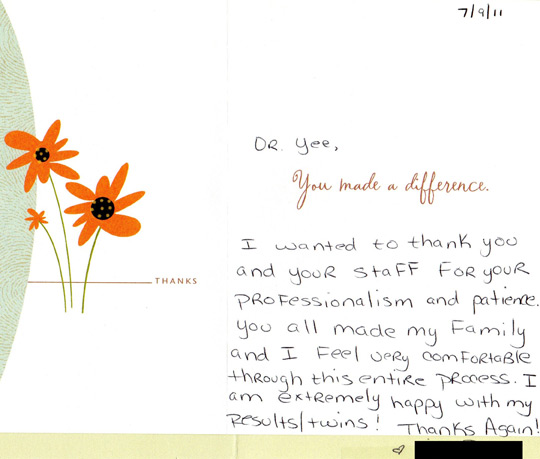 7/9/11
Dr. Yee,
You made a difference.
I wanted to thank you
and your staff for your
professionalism and patience.
You all made my family
and I feel very comfortable
through this entire process. I
am extremely happy with my
results/twins! Thanks Again!
THANKS